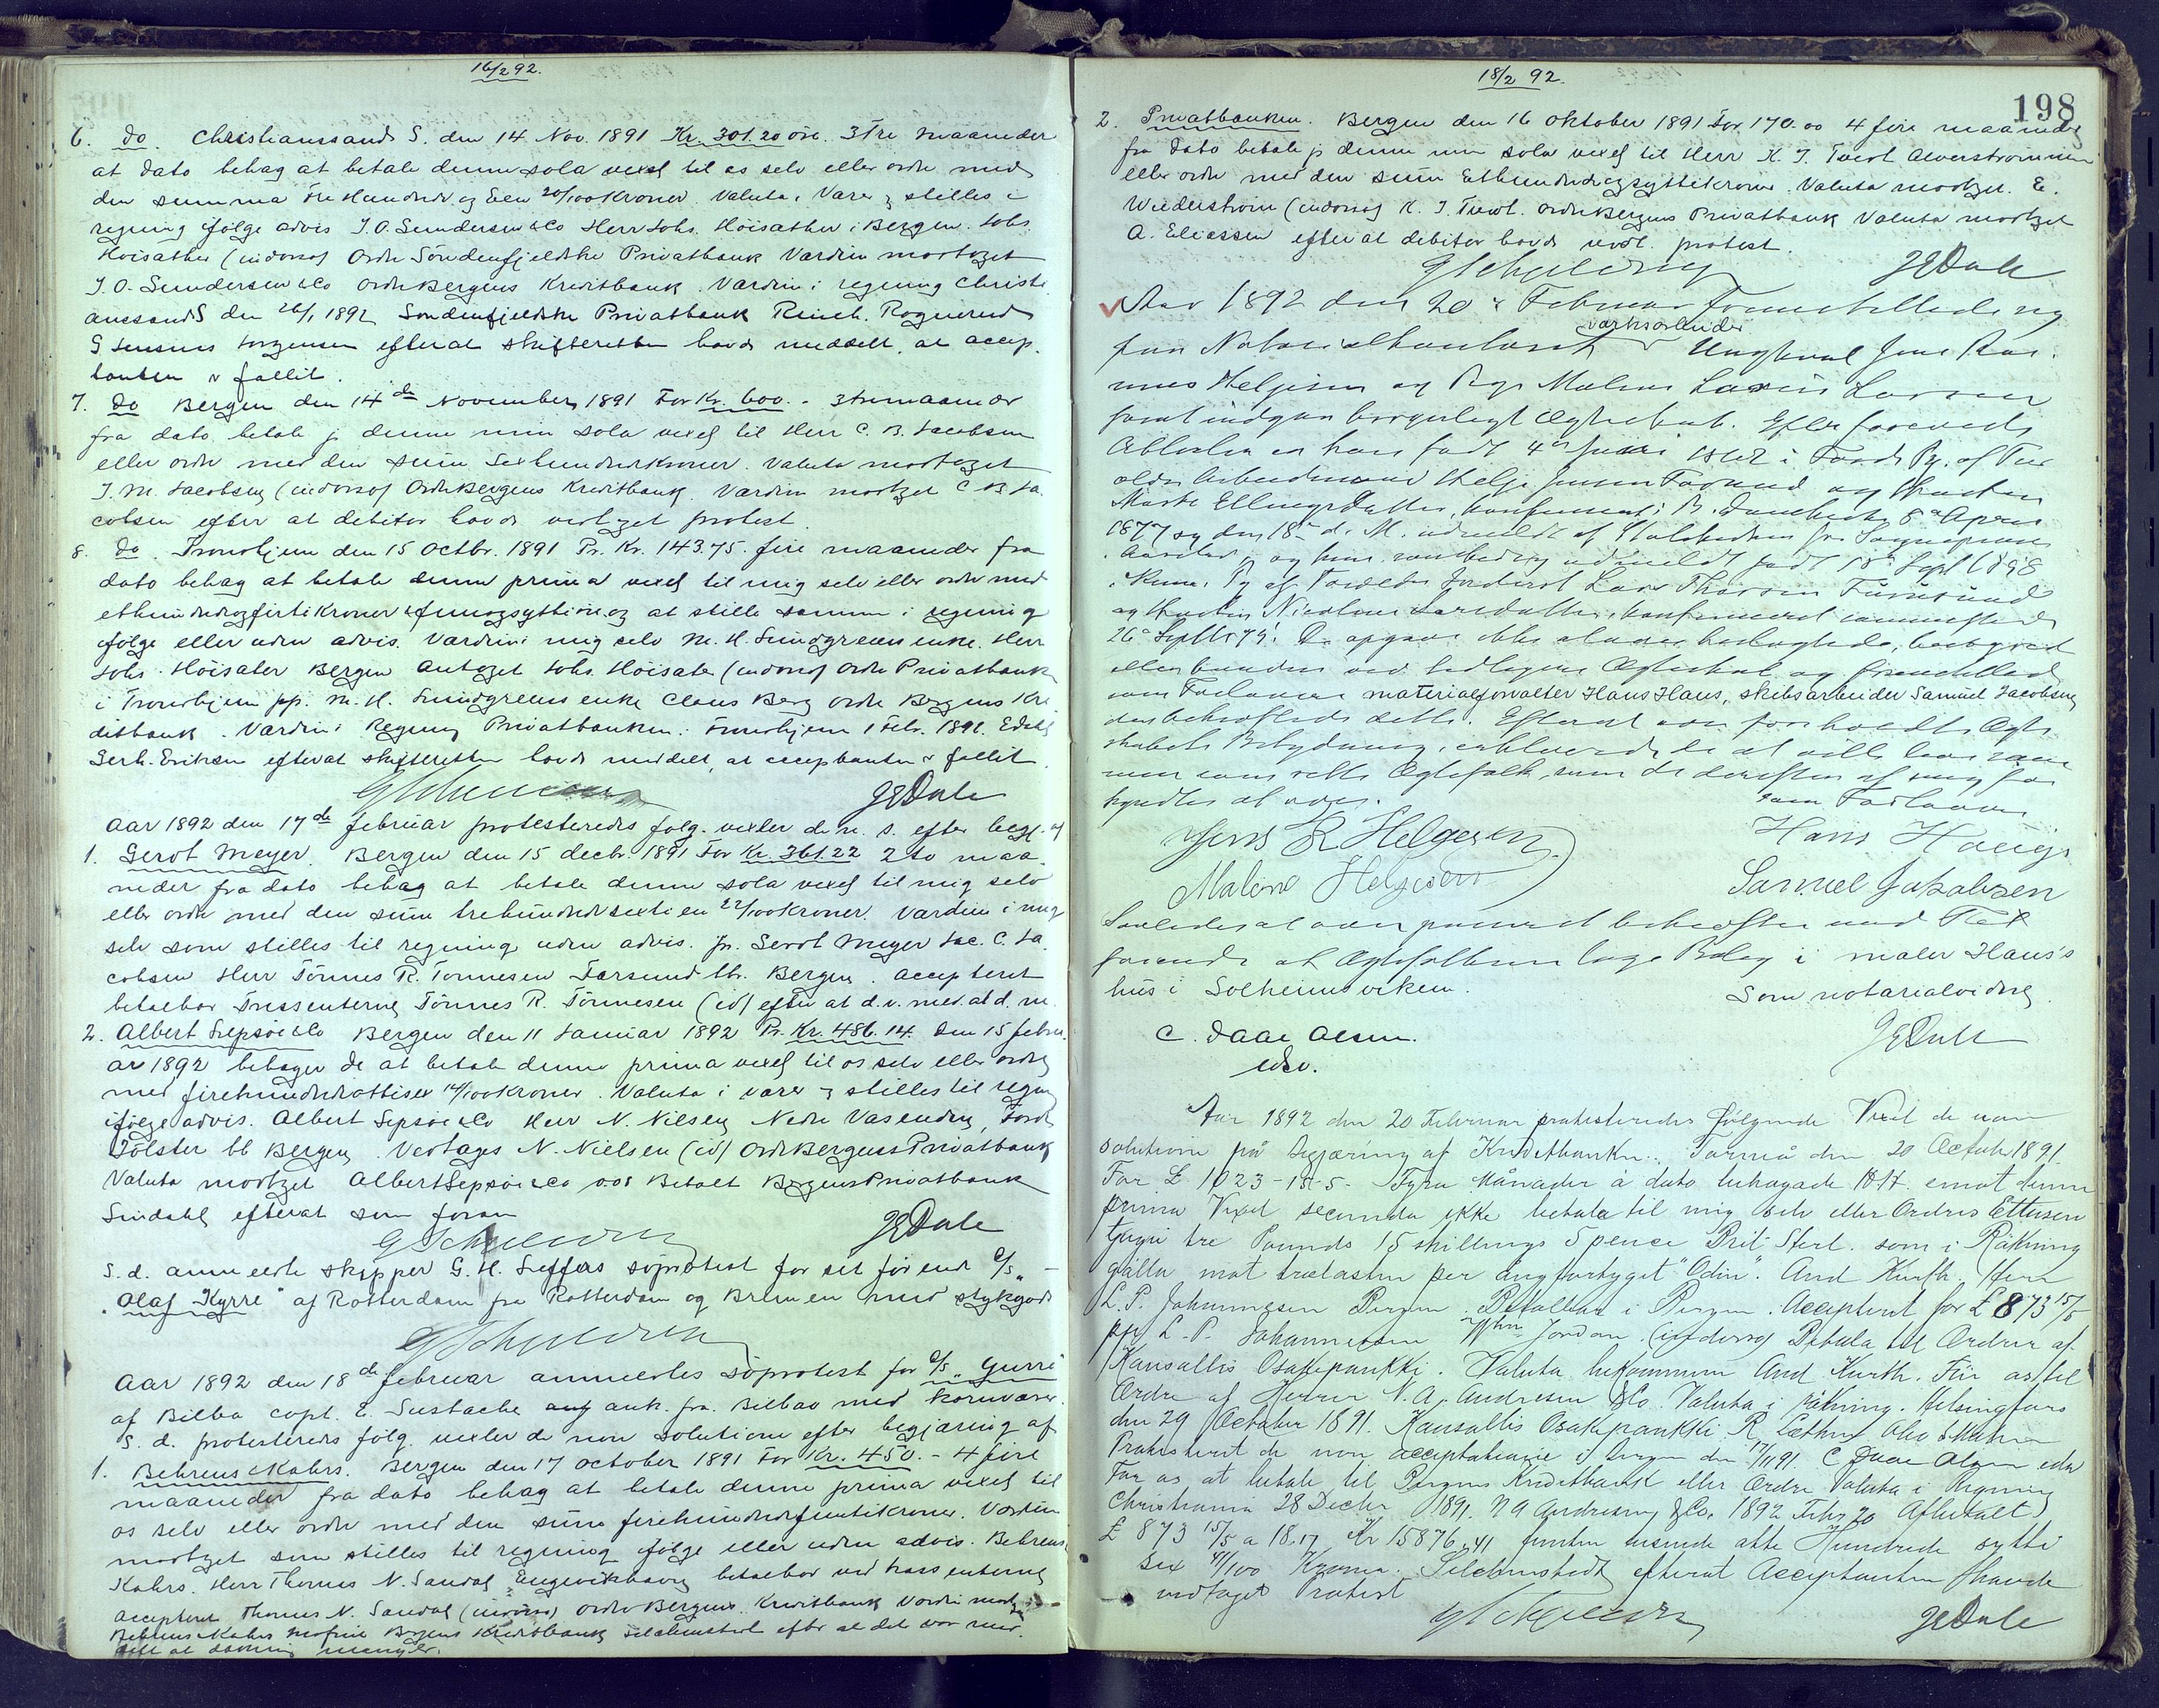 16/2 92.
6. do. Christianssand S. den 14 Nov. 1891 Kr. 301.20 øre 3 Tre maaneder
at dato behag at betale denne sola vexel til os selv eller ordre med
den summa Tre Hundrede og Een 20/100 Kroner. Valuta i Varer & stilles i
regning ifølge advis J. O. Gundersen & Co Herr Johs. Höisæther i Bergen. Johs
Höisæther (indorso) Ordre Söndenfjeldske Privatbank Værdien modtaget
J. O. Gundersen & Co Ordre Bergens Kreditbank. Værdien i regning Christi
anssand S den 26/1 1892 Söndenfjeldske Privatbank
efterat skifteretten havde meddelt, at accep
tanten er fallit.
7. do Bergen den 14de November 1891 For Kr. 600. - 3 tre maaneder
fra dato betale jeg denne min sola vexel til Herr C. B. Jacobsen
eller ordre med den sum Sexhundrede Kroner. Valuta modtaget
J. M. Jacobsen (indorso) Ordre Bergens Kreditbank. Værdien modtaget C B Ja
cobsen efter at debitor havde vedtaget protest.
8. do. Tronhjem den 15 Octbr. 1891 Pr. Kr. 143.75. fire maaneder fra
dato behag at betale denne prima vexel til mig selv eller ordre med
ethundrede og firti Kroner & femogsytti øre og at stille samme i regning
ifølge eller uden advis. Værdien i mig selv M. H. Lundgreens enke. Herr
Johs. Höisæter Bergen Antaget Johs. Höisæter (indorso) Ordre Privatbanken
i Tronhjem pp. M. H. Lundgreens enke Claus Berg Ordre Bergens Kre
ditbank. Værdien i Regning Privatbanken i Tronhjem 1 Febr. 1892.
Gerh. Eriksen efterat skifteretten havde meddelt, at acceptanten er fallit.
JEDale
Aar 1892 den 17de februar protesteredes følg. vexler de n. s. efter begj. af
1. Gerdt Meyer. Bergen den 15 decbr. 1891 For Kr. 361.22 2 to maa
neder fra dato behag at betale denne sola vexel til mig selv
eller ordre med den sum trehundrede sexti en 22/100 Kroner. Værdien i mig
selv som stilles til regning uden advis. pr. Gerdt Meyer Jac. C. Ja
cobsen Herr Tönnes R. Tönnesen Farsund bt. Bergen. Accepteret
betalbar Trassenterne Tönnes R. Tönnesen (id) efter at d. v. med. at d. m.
2. Albert Jepsøe & Co Bergen den 11 Januar 1892 Pr. Kr. 486.14. Den 15 febru
ar 1892 behager De at betale denne prima vexel til os selv eller ordre
med firehundrede ottisex 14/100 Kroner. Valuta i varer & stilles til regning
ifølge advis. Albert Jepsøe & Co Herr N. Nilsen Nedre Vasenden, Förde
Jölster bt Bergen. Vedtages N. Nielsen (id) Ordre Bergens Privatbank
Valuta modtaget Albert Jepsøe & Co Betalt Bergens Privatbank
efterat som foran
JEDale
S. d. anmeldte skipper G. H. søprotest for sit förende D/S „
„Olaf Kyrre“ af Rotterdam fra Rotterdam og Bremen med stykgods
Aar 1892 den 18de februar anmeldtes søprotest for D/S „Gurri“
af Bilbao capt. E. Sustache ank. fra Bilbao med kornvarer.
S. d. protesteredes følg. vexler de non solutione efter begjæring af
1. Behrens & Kahrs. Bergen den 17 October 1891 For Kr. 450. - 4 fire
maaneder fra dato behag at betale denne prima vexel til
os selv eller ordre med den sum firehundrede femti Kroner. Værdien
modtaget som stilles til regning ifølge eller uden advis. Behrens
Kahrs. Herr Thomas N. Sandal Engevikhavn betalbar ved trassenterne
Accepteret Thomas N. Sandal (indorso) Ordre Bergens Kreditbank Værdien modtaget
Behrens & Kahrs Bergens Kreditbank efter at det var med
delt at dækning mangler.
18/2 92.
198
2. Privatbanken. Bergen den 16 Oktober 1891 For 170.00 4 fire maaneder
fra dato betale jeg denne min sola vexel til Herr K. J. Tveit Alverstrømmen
eller ordre med den sum Ethundrede og sytti kroner. Valuta modtaget. E.
Wiederstrøm (indorso) K. J. Tveit. Ordre Bergens Privatbank Valuta modtaget
A. Eliassen efter at debitor havde vedt. protest.
JEDale
Aar 1892 den 20de Februar fremstillede sig
paa Notarialkontoret værksarbeider Ungkarl Jens Ras
mus Helgesen og Pige Malene Larsen
for at indgaa borgerligt Ægteskab. Efter forevist
Attester er han født 4de Juni 1862 i Førde Pg. af For
ældre Arbeidsmand Helje Jensen og Hustru
Marte Ellingsdatter, konfirmeret i B. Domkirke 8de April
1877 og den 18de d. M. udmeldt af Statskirken fra Sogneprest
og hun udmeldt født 18de Sept 1858
i Pg af Forældre Lars
og Hustru Nicoline Larsdatter, konfirmeret sammesteds
26de Septbr 79. De opgave ikke at være beslægtede, besvogrede
eller bundne ved tidligere Ægteskab og fremstillede
som Forlovere materialforvalter Hans Haus, skibsarbeider Samuel Jacobsen
der bekræftede dette. Efterat var foreholdt Ægte
skabets Betydning, erklærede de at ville leve sam
men som rette Ægtefolk, som de derefter af mig for
kyndtes at være.
som Forlovere
Jens R Helgesen
Hans Hauge
Malene Helgesen
Samuel Jakobsen
Saaledes at være passeret bekræftes med Til
føiende at Ægtefolkene tage Bolig i maler Haus's
hus i Solheimsviken.
Som notarialvidne
C. Daae Olsen.
edsv.
JEDale
Aar 1892 den 20 Februar protesteredes følgende Vexel de non
solutione på Begjæring af Kreditbanken. Torneå den 20 October 1891.
For £ 1023-15-5. Fyra Månader à dato behagade H. H. emot denna
prima Vexel secunda ikke betala til mig selv eller Ordres Ettusen
tjugu tre Pounds 15 skillings 5 pence Brit. Sterl. som i Räkning
gälla mot trælasten per ångfartyget "Odin". And Kurth. Herr
L. P. Johannesen Bergen. Betalbar i Bergen. Accepteret for £ 873 15/5
pp L. P. Johannesen Whm Jordan. (indorso) Betala til Ordres af
Kansallis Osakepankki. Valuta bekommen And Kurth. För os til
Ordre af Herrer N. A. Andresen & Co. Valuta i räkning. Helsingfors
den 29 October 1891. Kansallis Osakepankki.
Protesteret de non acceptatione i Bergen den 17/11 91. C Daae Olsen edsv
For os at betale til Bergens Kreditbank eller Ordre Valuta i Regning
Christiania 28 Decbr 1891. N A Andresen & Co. 1892 Febr 20 Afbetalt
£ 873 15/5 a 18.17 Kr 15876.41 femten tusinde otte Hundrede sytti
sex 41/100 Kroner. efterat Acceptanten havde
vedtaget Protest
JEDale